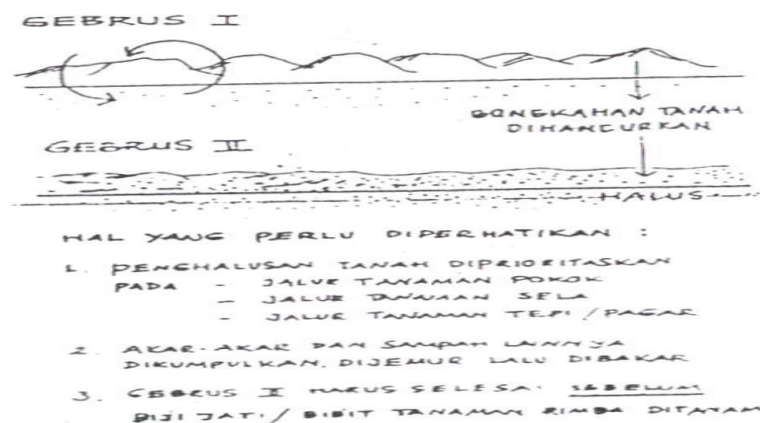 GEBRUS I
BONGKAHAN TANAH
DIHANCURKAN
GEBRUS II
HALUS
HAL YANG PERLU DIPERHATIKAN :
1. PENGHALUSAN TANAH DIPRIORITASKAN
PADA - JALUR TANAMAN POKOK
- JALUR TANAMAN SELA
- JALUR TANAMAN TEPI / PAGAR
2. AKAR-AKAR DAN SAMPAH LAINNYA
DIKUMPULKAN, DIJEMUR LALU DIBAKAR
3. GEBRUS II HARUS SELESAI SEBELUM
BIJI JATI / BIBIT TANAMAN RIMBA DITANAM